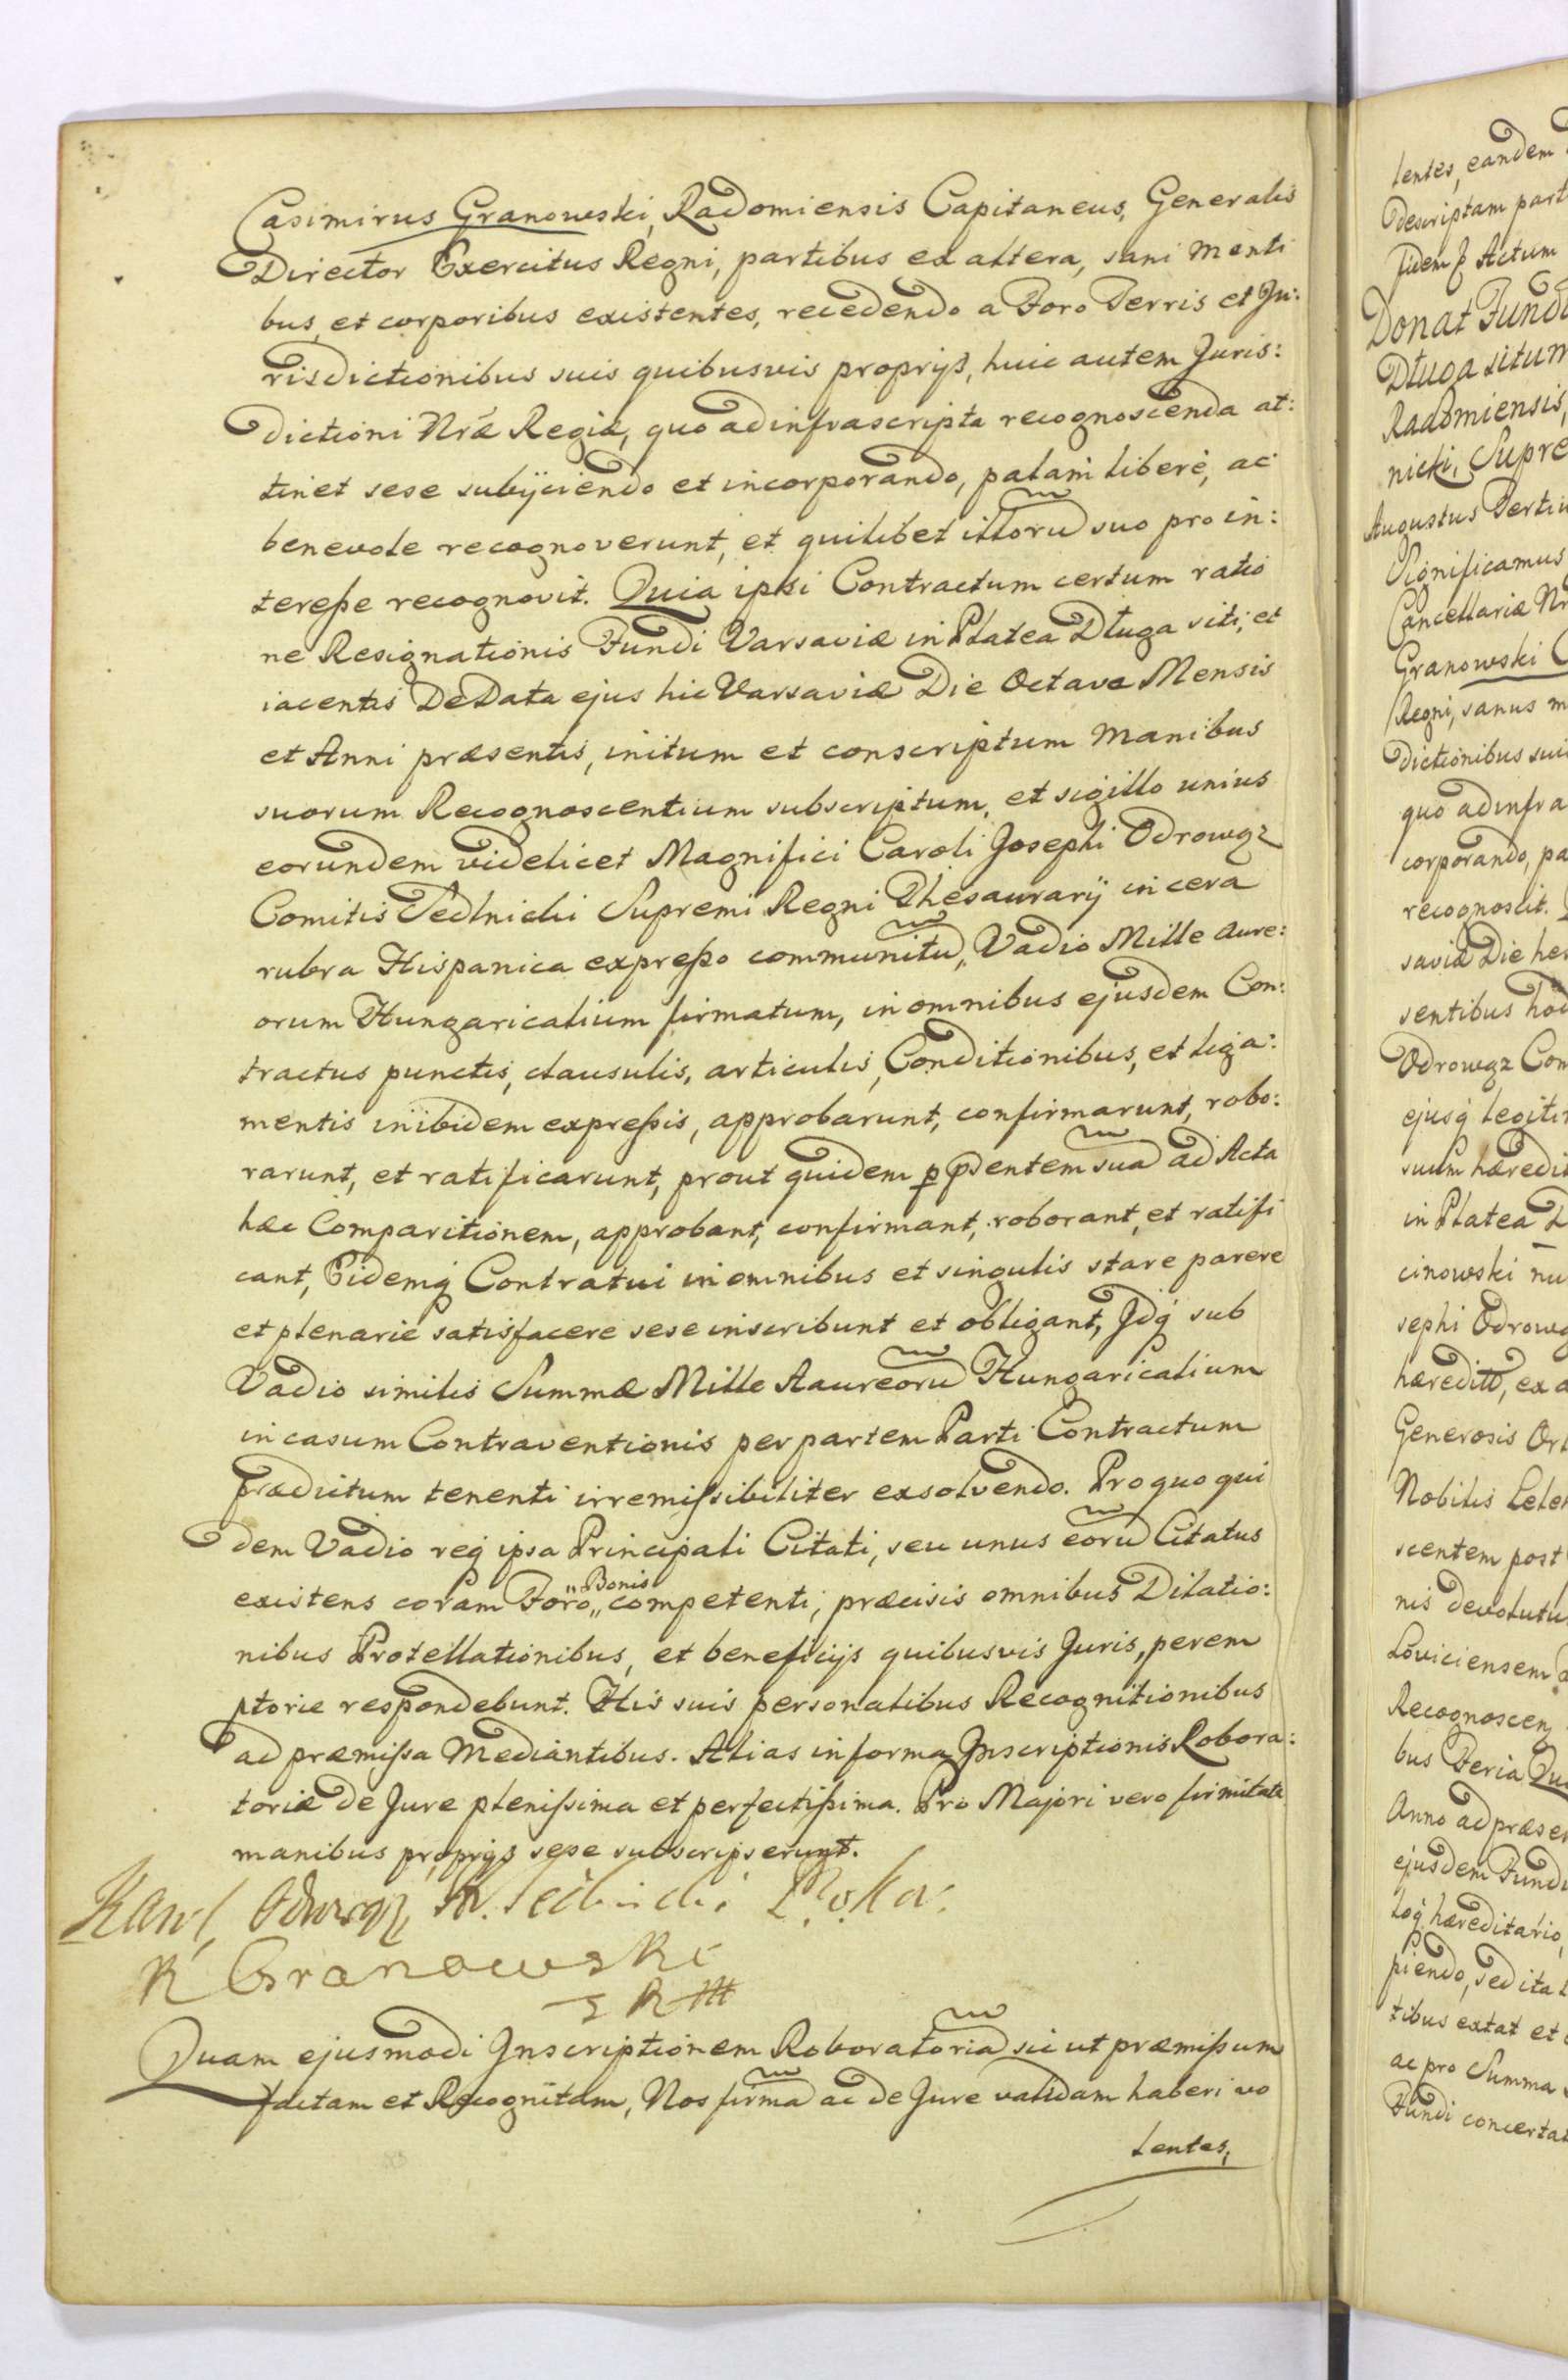 Casimirus Granowski, Radomiensis Capitaneus, Generalis
Director Exercitus Regni, partibus ex altera, sani menti
bus, et corporibus existentes, recedendo a Foro Terris et Ju:
risdictionibus suis quibusvis proprijs, huic autem Juris:
dictioni Nræ Regiæ, quo ad infrascripta recognoscenda at:
tinet sese subijciendo et incorporando, palam liberè, ac
benevole recognoverunt, et quilibet illoru suo pro in:
teresse recognovit. Quia ipsi Contractum certum ratio
ne Resignationis Fundi Varsaviæ in Platea Długa siti, et
iacentis De Data ejus hic Varsaviæ Die Octava Mensis
et Anni præsentis, initum et conscriptum manibus
suorum Recognoscentium subscriptum, et sigillo unius
eorundem videlicet Magnifici Caroli Josephi Odrowąz
Comitis Sedlnicki Supremi Regni Thesaurarij in cera
rubra Hispanica expresso communitu, Vadio Mille aure:
orum Hungaricalium firmatum, in omnibus ejusdem Con:
tractus punctis, clausulis, articulis, Conditionibus, et liga:
mentis inibidem expressis, approbarunt, confirmarunt, robo:
rarunt, et ratificarunt, prout quidem p pſentem sua ad Acta
hæc Comparitionem, approbant, confirmant, roborant, et ratifi
cant, Eidemq Contratui in omnibus et singulis stare parere
et plenarie satisfacere sese inscribunt et obligant, Idq sub
Vadio similis Summæ Mille Aaureoru Hungaricalium
in casum Contraventionis per partem Parti Contractum
prædictum tenenti irremissibiliter exsolvendo. Pro quo qui
dem Vadio req ipsa Principali Citati, seu unus eoru Citatus
existens coram Foro "Bonis" competenti, præcisis omnibus Dilatio:
nibus Protellationibus, et beneficijs quibusvis Juris, perem
ptorie respondebunt. His suis personalibus Recognitionibus
ad præmissa Mediantibus. Alias in forma Inscriptionis Robora:
toriæ de Jure plenissima et perfectissima. Pro Majori vero firmitate
manibus proprijs sese subscripserunt.
Karol Odrowąz Sedlnicki
K Granowski
Quam ejusmodi Inscriptionem Roboratoria sic ut præmissum
factam et Recognitam, Nos firma ac de Jure validam haberi vo
lentes,
lentes, eandem
descriptam part
fidem & Actum
Donat Fundi
Długa situm
Radomiensis,
nicki, Supre
Augustus Tertiu
Significamus
Cancellariæ Nr
Granowski C
Regni, sanus m
dictionibus sui
quo ad infra
corporando, pa
recognoscit.
saviæ Die he
sentibus hod
Odrowąz Com
ejusq legiti
suum hæredit
in Platea D
cinowski nu
sephi Odrową
hæreditt, ex a
Generosis Or
Nobilis Lele
scentem post
nis devolutu
Loviciensem
Recognoscen
bus Feria Qu
Anno ad præse
ejusdem Fundi
loq hæreditario,
piendo, sed ita
tibus extat et
ac pro Summa
Fundi concerta